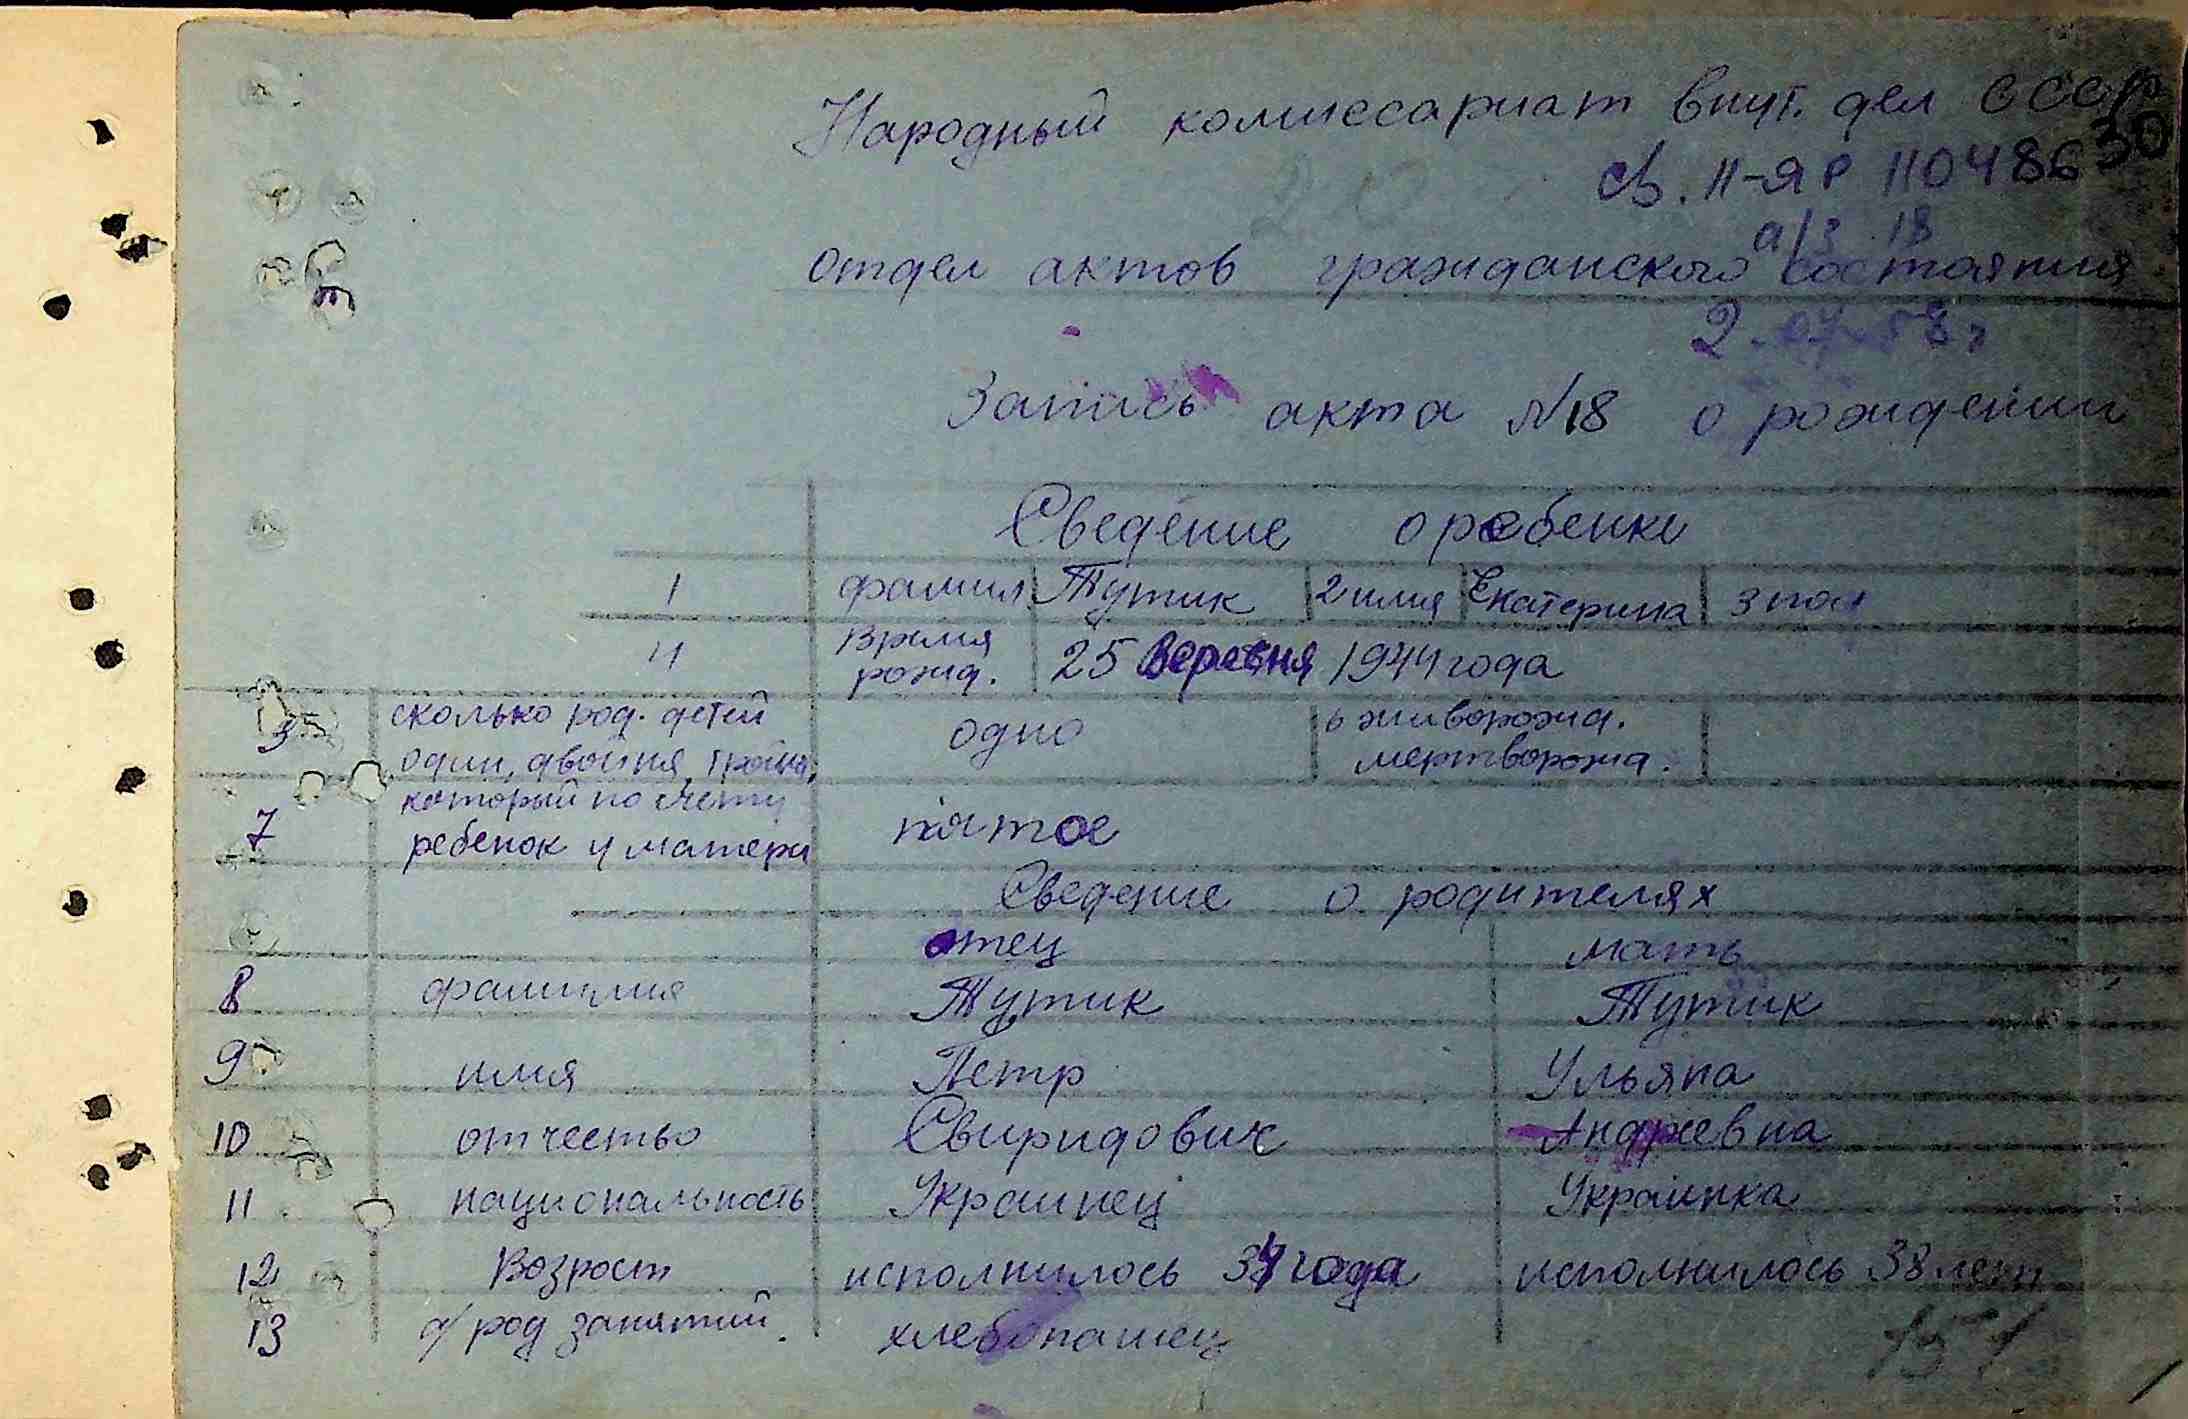 Народный комиссариат внут. дел СССР
30
св. II-ЯР 110486
а/з 18
отдел актов гражданского состояния
2.07.58г
Запись акта №18 о рождении
Сведение о ребенке
1 фамил. Тутик 2 имя Екатерина 3 пол
4 время рожд. 25 Вересня 1944 года
5 сколько род. детей одно 6 живорожд.
один, двойня, тройня, мертворожд.
7 который по счету
ребенок у матери пятое
Сведение о родителях
отец мать
8 фамилия Тутик Тутик
9 имя Петр Ульяна
10 отчество Свиридович Андреевна
11 национальность Украинец Украинка
12 Возраст исполнилось года исполнилось 38 лет
13 а/ род занятий. хлебопашец
151